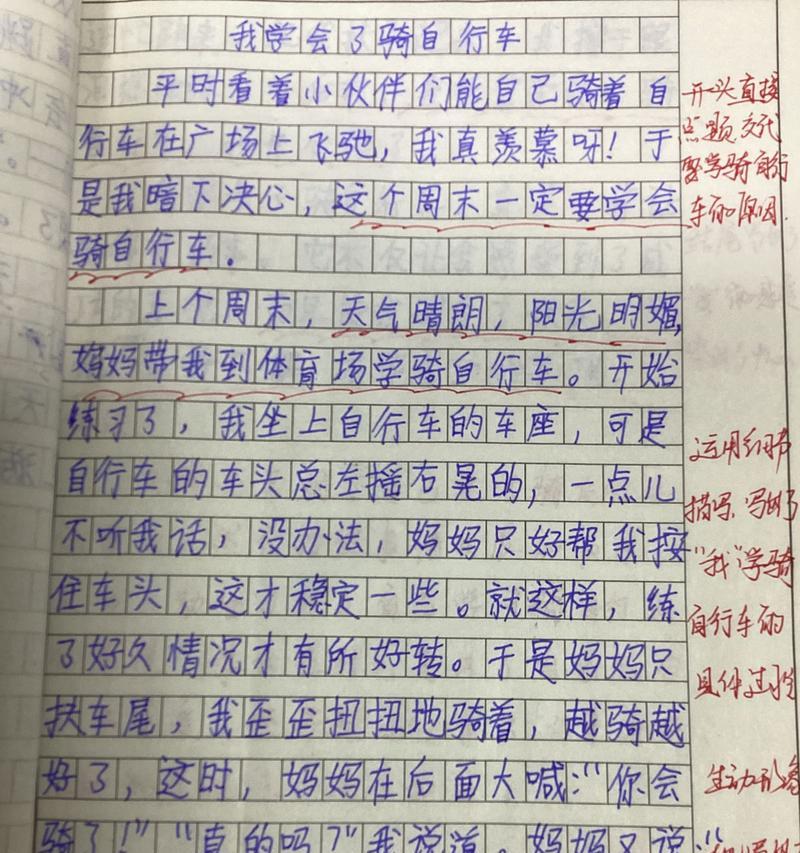 我学会了骑自行车
平时看着小伙伴们能自己骑着自
行车在广场上飞驰，我真羡慕呀！于
是我暗下决心，这个周末一定要学会
骑自行车。
上个周末，天气晴朗，阳光明媚，
妈妈带我到体育场学骑自行车。开始
练习了，我坐上自行车的车座，可是
自行车的车头总左摇右晃的，一点儿
不听我话，没办法，妈妈只好帮我按
住车头，这才稳定一些。就这样，练
了好久情况才有所好转。于是妈妈只
扶车尾，我歪歪扭扭地骑着，越骑越
好了，这时，妈妈在后面大喊：“你会
骑了！”“真的吗？”我说道。妈妈又说：“
开头直接
点题，交代
要学骑自行
车的原因.
运用细节
描写，写出了
“我”学骑
自行车的
具体过程
生动形象